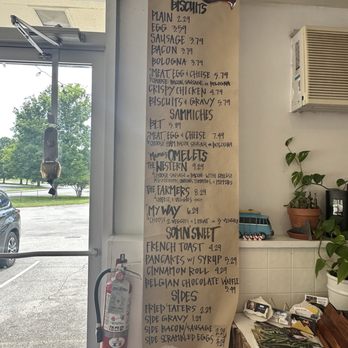 BISCUITS
PLAIN 2.29
EGG 3.59
SAUSAGE 3.79
BACON 3.79
BOLOGNA 3.79
MEAT, EGG & CHEESE 5.79
CRISPY CHICKEN 4.79
BISCUITS & GRAVY 5.79
SAMMICHES
BLT 5.89
MEAT, EGG & CHEESE 7.49
OMELETS
THE WESTERN 9.29
THE FARMERS 8.29
MY WAY 6.29
SOMN SWEET
FRENCH TOAST 4.29
PANCAKES W/ SYRUP 5.29
CINNAMON ROLL 4.29
BELGIAN CHOCOLATE WAFFLE
5.49
SIDES
FRIED TATERS 2.29
SIDE GRAVY 1.29
SIDE BACON/SAUSAGE
SIDE SCRAMBLED EGGS